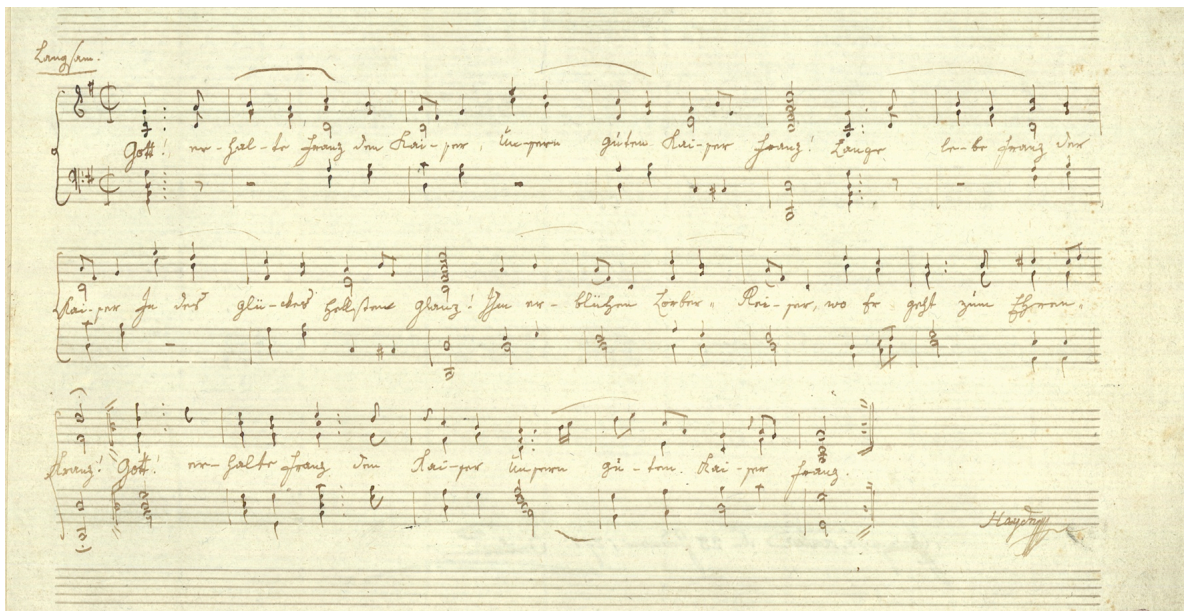 Langsam.
Gott! er-hal-te Franz den Kai-ser, Un-sern guten Kai-ser Franz! Lange le-be Franz der
Kai-ser In des glü-ckes hellsten glanz! Ihm er-blühen Lorber-Rei-ser, wo Er geht zum Ehren-
Kranz! Gott! er-halte Franz den Kai-ser Unsern gu-ten Kai-ser Franz.
Haydn